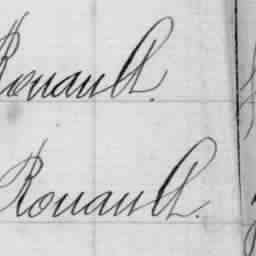 Rouault.
Rouault.